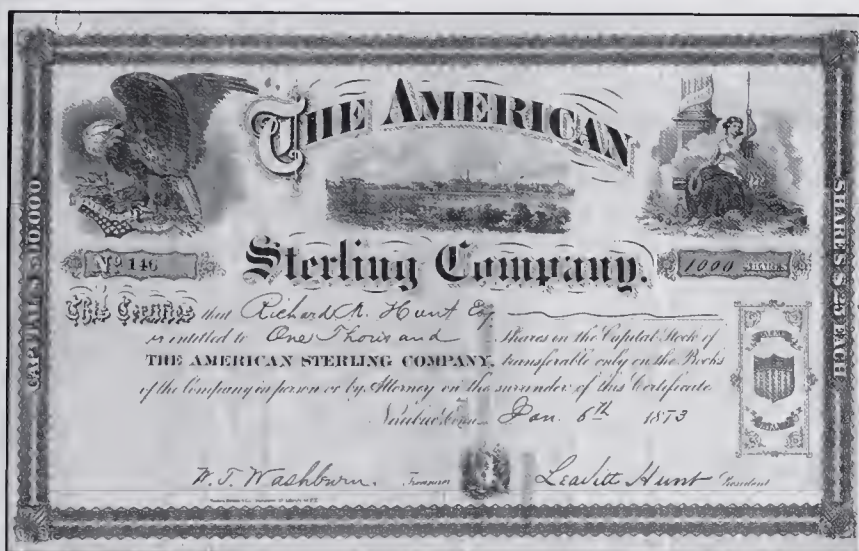 THE AMERICAN
Sterling Company.
No 146
1000 SHARES
This Certifies that Richard M. Hunt Esq
is entitled to One Thousand Shares on the Capital Stock of
THE AMERICAN STERLING COMPANY, transferable only on the Books
of the Company in person or by Attorney on the surrender of this Certificate
Jan. 6th 1873
W. T. Washburn. Treasurer
Leavitt Hunt President
SHARES $25 EACH
STAMP